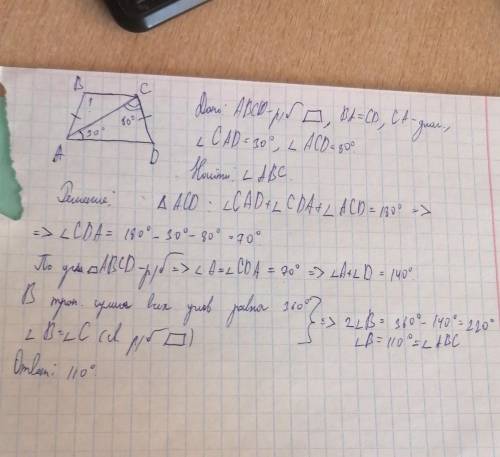 B C
1 80°
A 30° D
Дано: ABCD – р/б, BA=CD, CA – диаг.,
∠CAD=30°, ∠ACD=80°
Найти: ∠ABC.
Решение:
△ACD: ∠CAD+∠CDA+∠ACD=180° =>
=> ∠CDA = 180° – 30° – 80° = 70°
По усл. ABCD – р/б => ∠A=∠CDA = 70° => ∠A+∠D = 140°
В трап. сумма всех углов равна 360°
∠B=∠C (св. р/б) } => 2∠B = 360° – 140° = 220°
∠B = 110° = ∠ABC
Ответ: 110°.